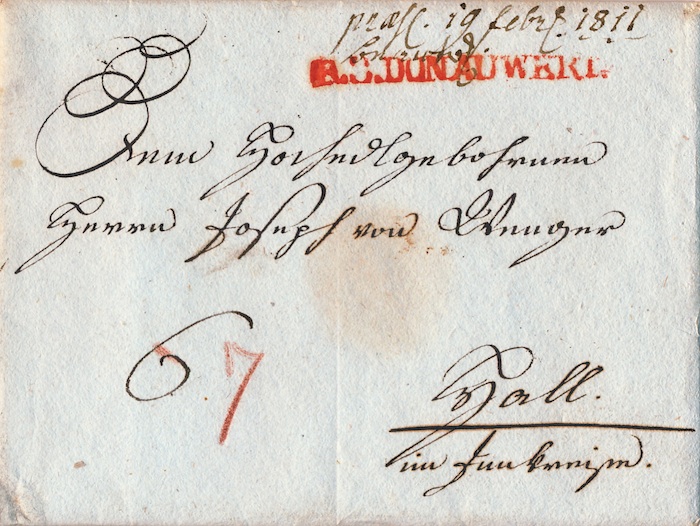 præs. 19 febr. 1811
R.3.DONAUWERT.
Dem Hochedlgebohrnen
Herrn Joseph von Wenger
6
7
Hall.
im Innkreise.